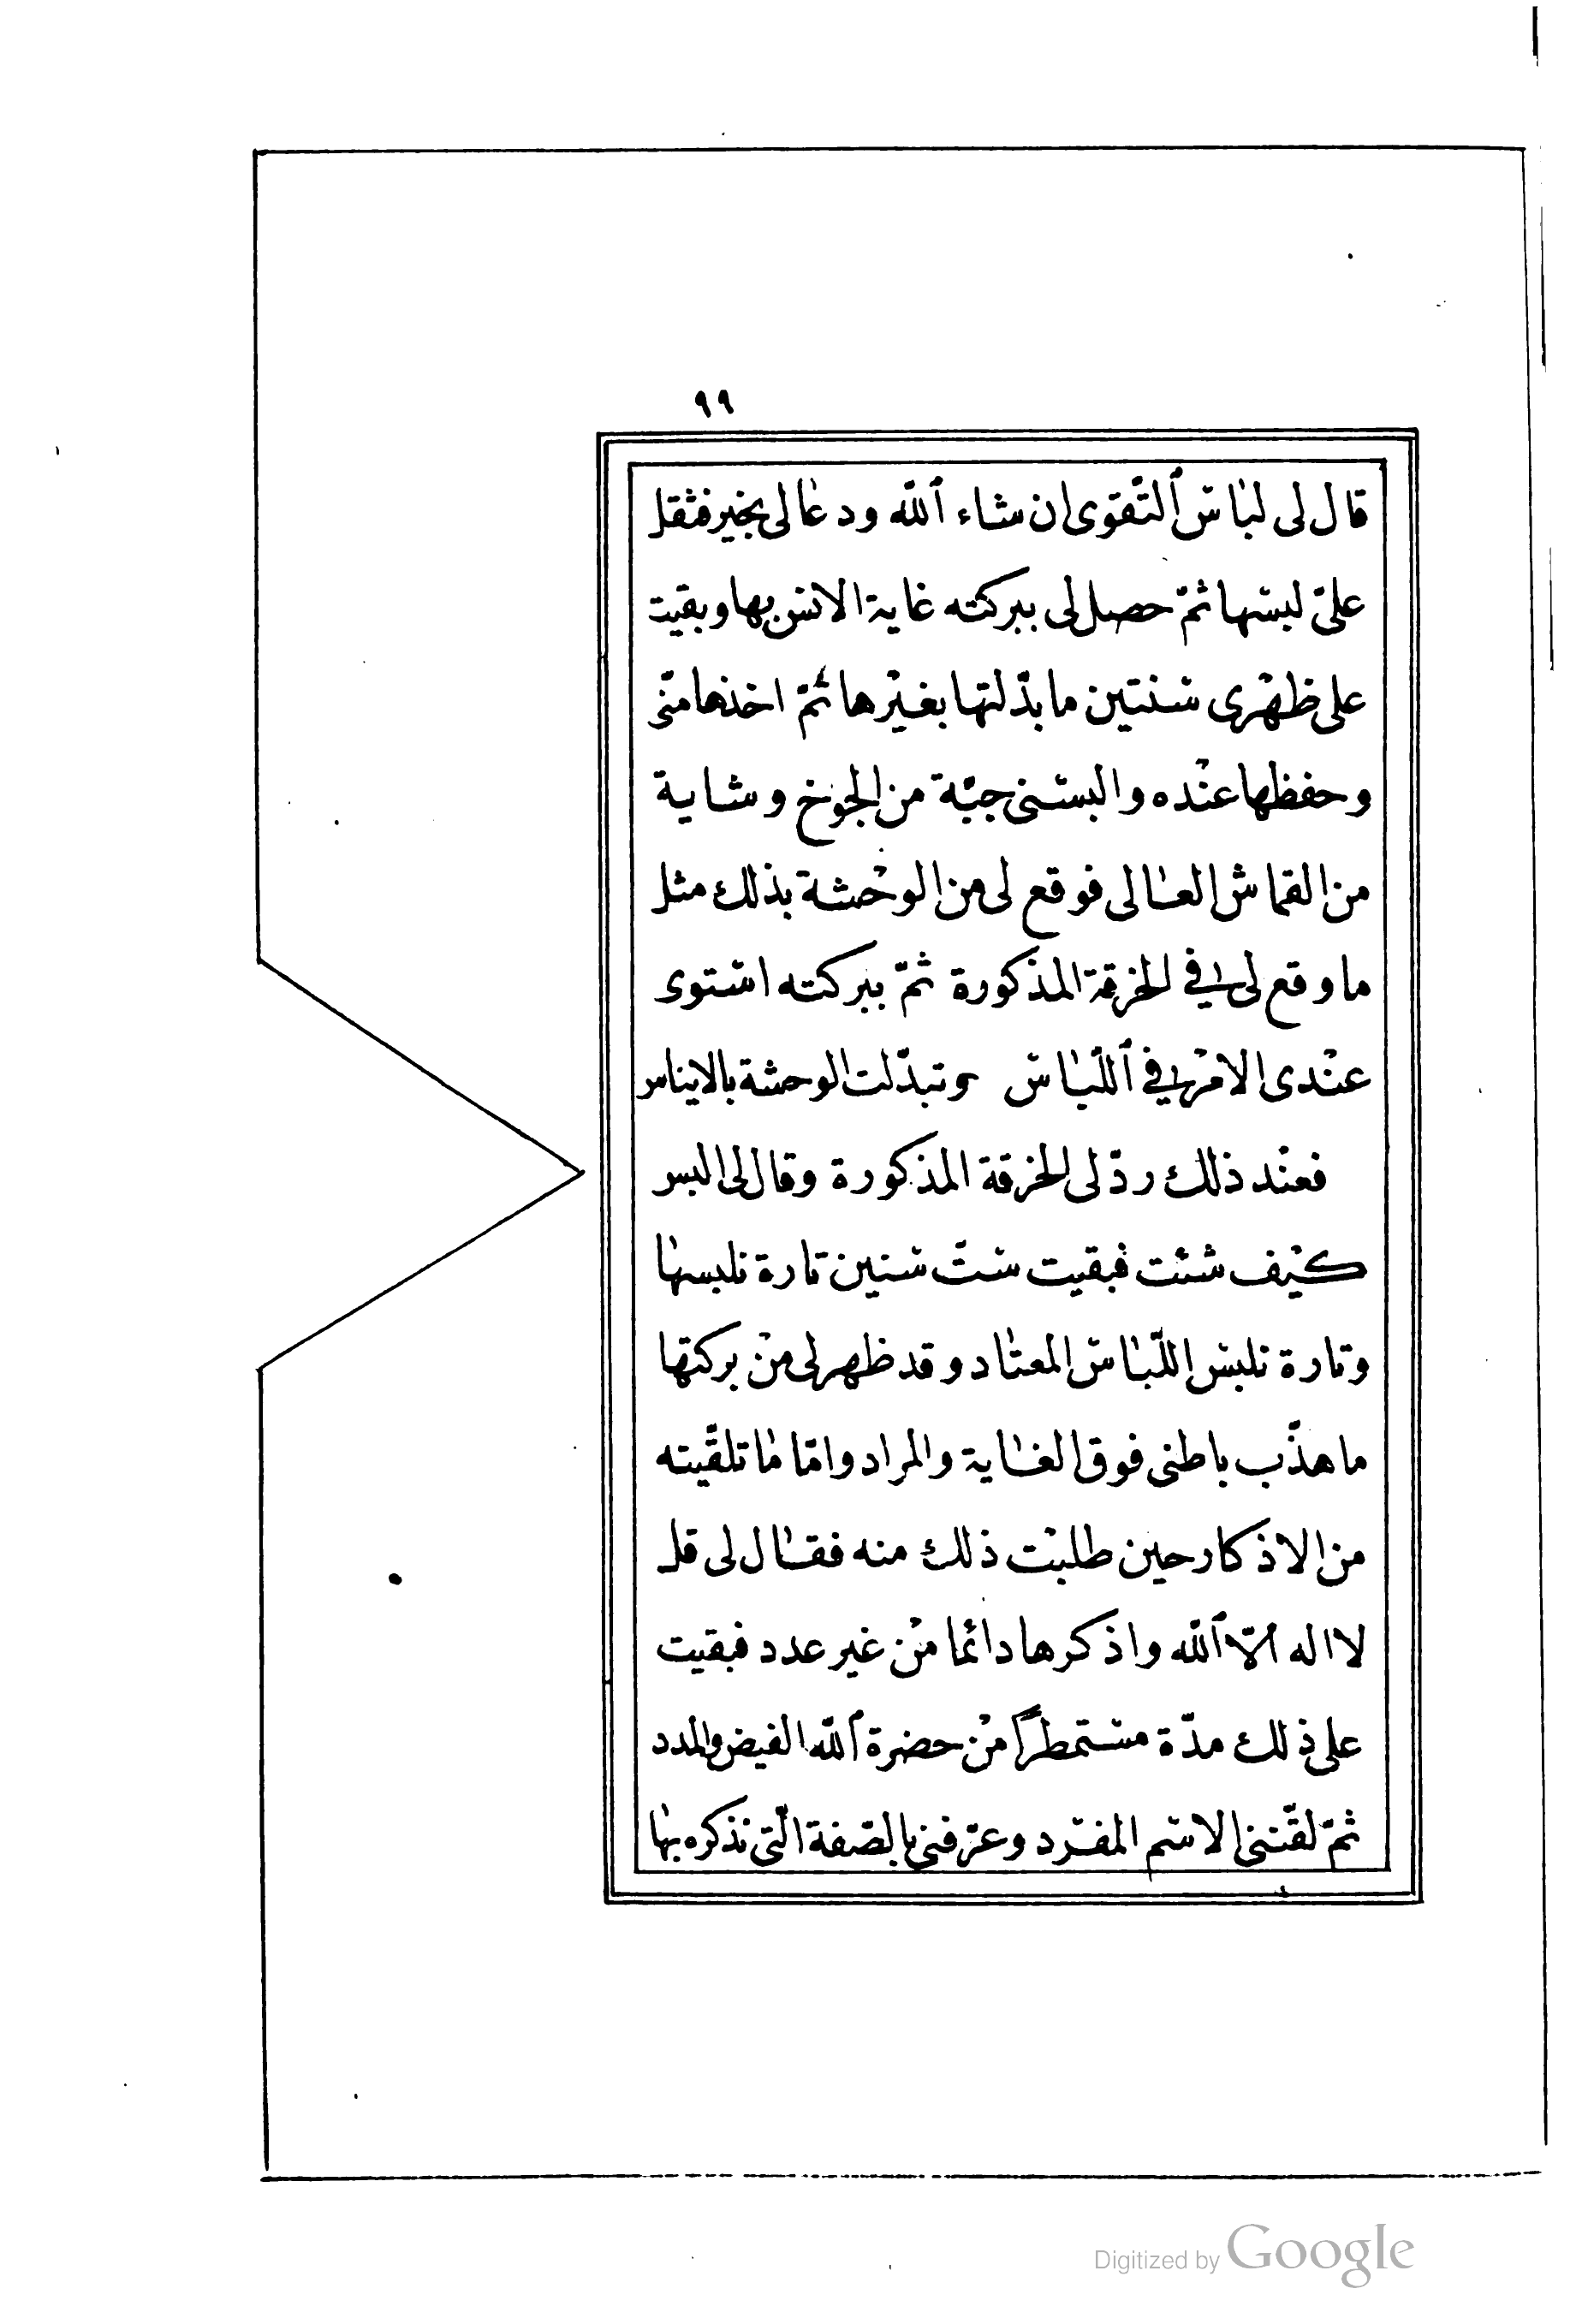 ٩٩
قال لى لبٰاسْ ٱلتّقوى ان شاء ٱللّه ودعٰا لى بخير فثقل
علىّ لبسْها ثمّ حصل لى ببركته غاية الانسْ بها وبقيت
على ظهْرى سْنتين ما بدّلتها بغيْرها ثُمّ اخذها منّى
وحفظها عنْده والبسْنى جبّة من الجوْخ وشاية
من القماش العٰالى فوقع لى من الوحْشة بذلك مثل
ما وقع لى في الخرقة المذكورة ثمّ ببركته اسْتوى
عنْدى الامْر في ٱللّبٰاسْ وتبدّلت الوحشة بالايناس
فعنْد ذلك ردّ لى الخرقة المذكورة وقال لى البس
كيْف شئت فبقيت سْتّ سْنين تارة نلبسهٰا
وتارة نلبسْ اللّبٰاسْ المعتٰاد وقد ظهر لى منْ بركتها
ما هذّب باطنى فوق الغٰاية والمراد وامّا مٰا تلقّيته
من الاذكار حين طلبْت ذلك منه فقٰال لى قل
لا اله الّا ٱللّه واذكرها دائما منْ غير عدد فبقيت
على ذلك مدّة مسْتمطراً منْ حضرة ٱللّه الفيض والمدد
ثمّ لقّننى الاسْم المفْرد وعرّفنى بالصّفة الّتى نذكره بهٰا
Digitized by Google